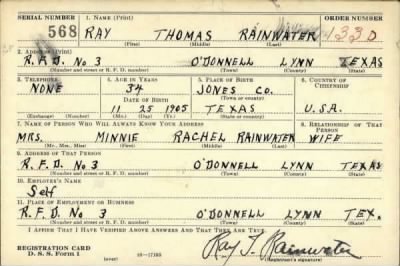 SERIAL NUMBER 1. NAME (Print) ORDER NUMBER
568 RAY THOMAS RAINWATER 1330
(First) (Middle) (Last)
2. ADDRESS (Print)
R.F.D. No 3 O'DONNELL LYNN TEXAS
(Number and street or R. F. D. number) (Town) (County) (State)
3. TELEPHONE 4. AGE IN YEARS 5. PLACE OF BIRTH 6. COUNTRY OF CITIZENSHIP
NONE 34 JONES CO.
DATE OF BIRTH (Town or county)
11 25 1905 TEXAS U.S.A.
(Exchange) (Number) (Mo.) (Day) (Yr.) (State or country)
7. NAME OF PERSON WHO WILL ALWAYS KNOW YOUR ADDRESS 8. RELATIONSHIP OF THAT PERSON
MRS. MINNIE RACHEL RAINWATER WIFE
(Mr., Mrs., Miss) (First) (Middle) (Last)
9. ADDRESS OF THAT PERSON
R.F.D. No 3 O'DONNELL LYNN TEXAS
(Number and street or R. F. D. number) (Town) (County) (State)
10. EMPLOYER'S NAME
Self
11. PLACE OF EMPLOYMENT OR BUSINESS
R.F.D. No 3 O'DONNELL LYNN TEX.
(Number and street or R. F. D. number) (Town) (County) (State)
I AFFIRM THAT I HAVE VERIFIED ABOVE ANSWERS AND THAT THEY ARE TRUE.
Ray T. Rainwater
REGISTRATION CARD
D. S. S. Form 1 16—17105 (Registrant's signature)